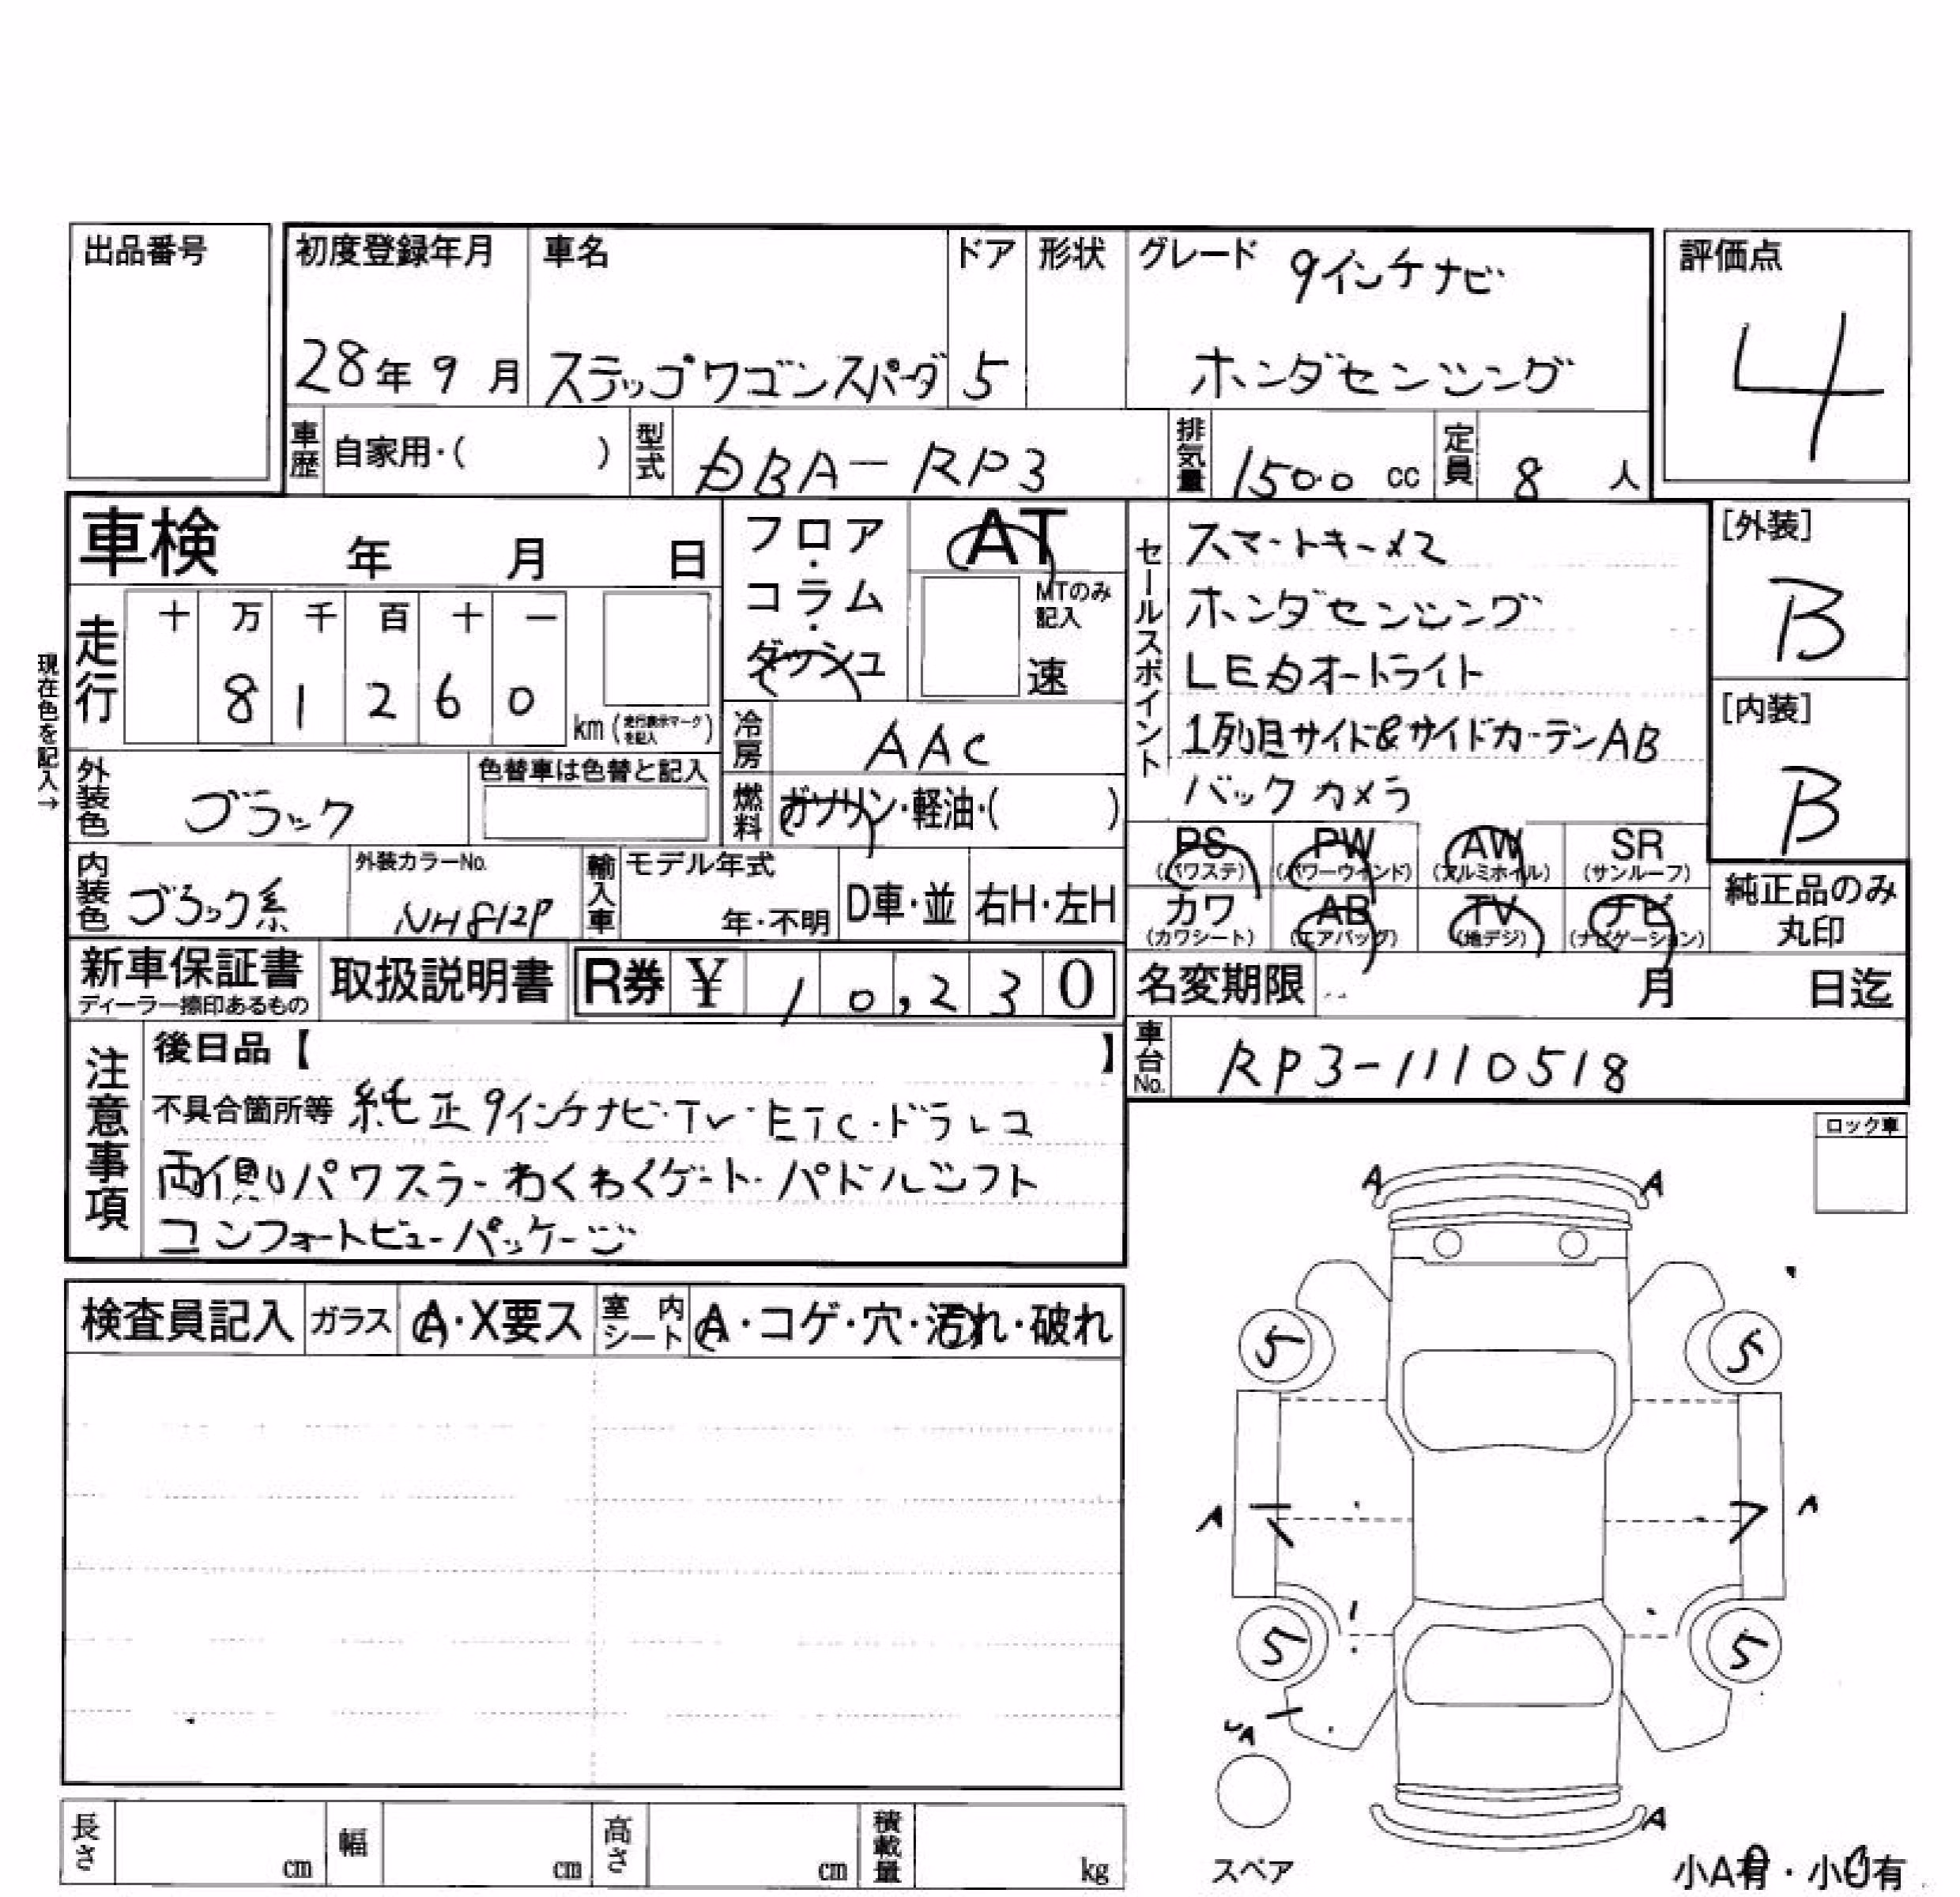 出品番号
初度登録年月 車名 ドア 形状 グレード 9インチナビ 評価点
28年 9月 ステップワゴンスパーダ 5 ホンダセンシング 4
車歴 自家用・( ) 型式 DBA-RP3 排気量 1500 cc 定員 8 人
車検 年 月 日
フロア・コラム・ダッシュ
AT
MTのみ記入
速
セールスポイント
スマートキー×2
ホンダセンシング
LEDオートライト
1列目サイド&サイドカーテンAB
バックカメラ
[外装]
B
[内装]
B
現在色を記入→
走行 十 万 千 百 十 一
8 1 2 6 0 km (走行表示マークを記入)
冷房 AAC
外装色 ブラック 色替車は色替と記入
燃料 ガソリン・軽油・( )
PS (パワステ) PW (パワーウインド) AW (アルミホイル) SR (サンルーフ)
カワ (カワシート) AB (エアバッグ) TV (地デジ) ナビ (ナビゲーション)
純正品のみ丸印
内装色 ブラック系 外装カラーNo. NH812P 輸入車 モデル年式 年・不明 D車・並 右H・左H
新車保証書 ディーラー捺印あるもの 取扱説明書 R券 ¥ 10,230
名変期限 月 日迄
車台No. RP3-1110518
注意事項
後日品【 】
不具合箇所等 純正9インチナビ・TV・ETC・ドラレコ
両側パワスラ・わくわくゲート・パドルシフト
コンフォートビューパッケージ
ロック車
A A
5 5
A A
5 5
A
A
検査員記入 ガラス A・X要ス 室内シート A・コゲ・穴・汚れ・破れ
長さ cm 幅 cm 高さ cm 積載量 kg
スペア
小A有・小U有